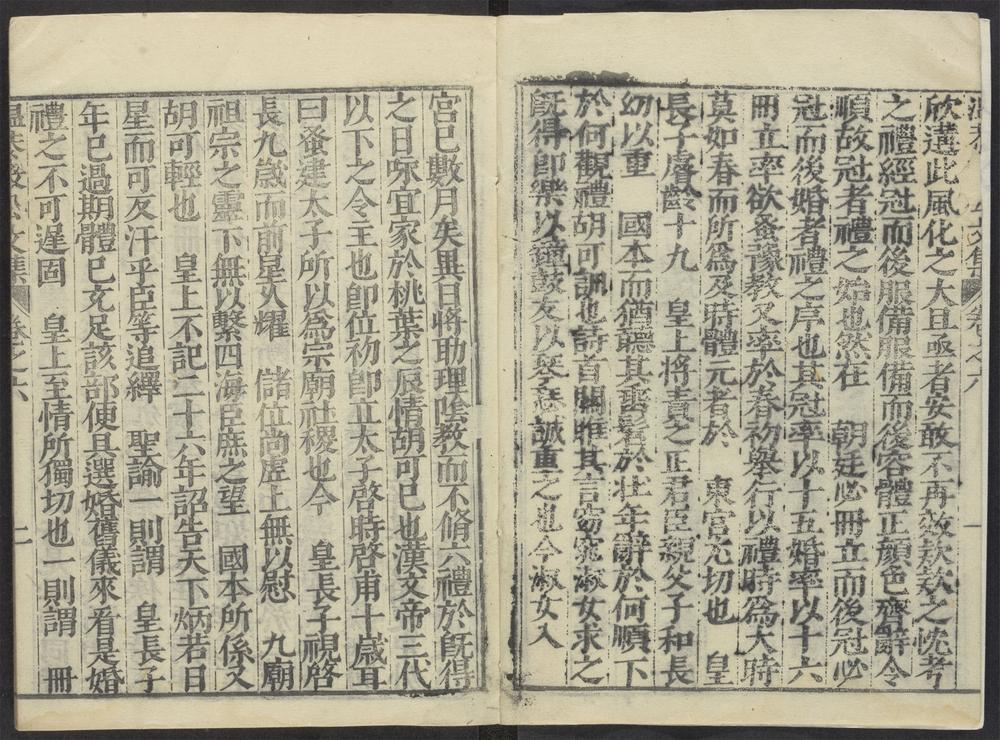 溫恭毅公文集 卷之六
欣遘此風化之大且亟者安敢不再效欵欵之忱考
之禮經冠而後服備服備而後容體正顏色齊辭令
順故冠者禮之始也然在 朝廷必冊立而後冠必
冠而後婚者禮之序也其冠率以十五婚率以十六
冊立率欲蚤豫教又率於春初舉行以禮時為大時
莫如春而所為及時體元者於 東宮尤切也 皇
長子睿齡十九 皇上將責之正君臣親父子和長
幼以重 國本而猶聽其垂髫於壯年辭於何順下
於何觀禮胡可訊也詩首關雎其言窈窕淑女求之
旣得即樂以鐘鼓友以琴瑟誠重之也今淑女入
宮已數月矣異日將助理陰教而不脩六禮於旣得
之日咏宜家於桃葉之辰情胡可已也漢文帝三代
以下之令主也即位初即立太子啓時啓甫十歲耳
曰蚤建太子所以為宗廟社稷也今 皇長子視啓
長九歲而前星久耀 儲位尚虛上無以慰 九廟
祖宗之靈下無以繫四海臣庶之望 國本所係又
胡可輕也 皇上不記二十六年詔告天下炳若日
星而可反汗乎臣等追繹 聖諭一則謂 皇長子
年已過期體已充足該部便具選婚舊儀來看是婚
禮之不可遲固 皇上至情所獨切也一則謂 冊
溫恭毅公文集 卷之六